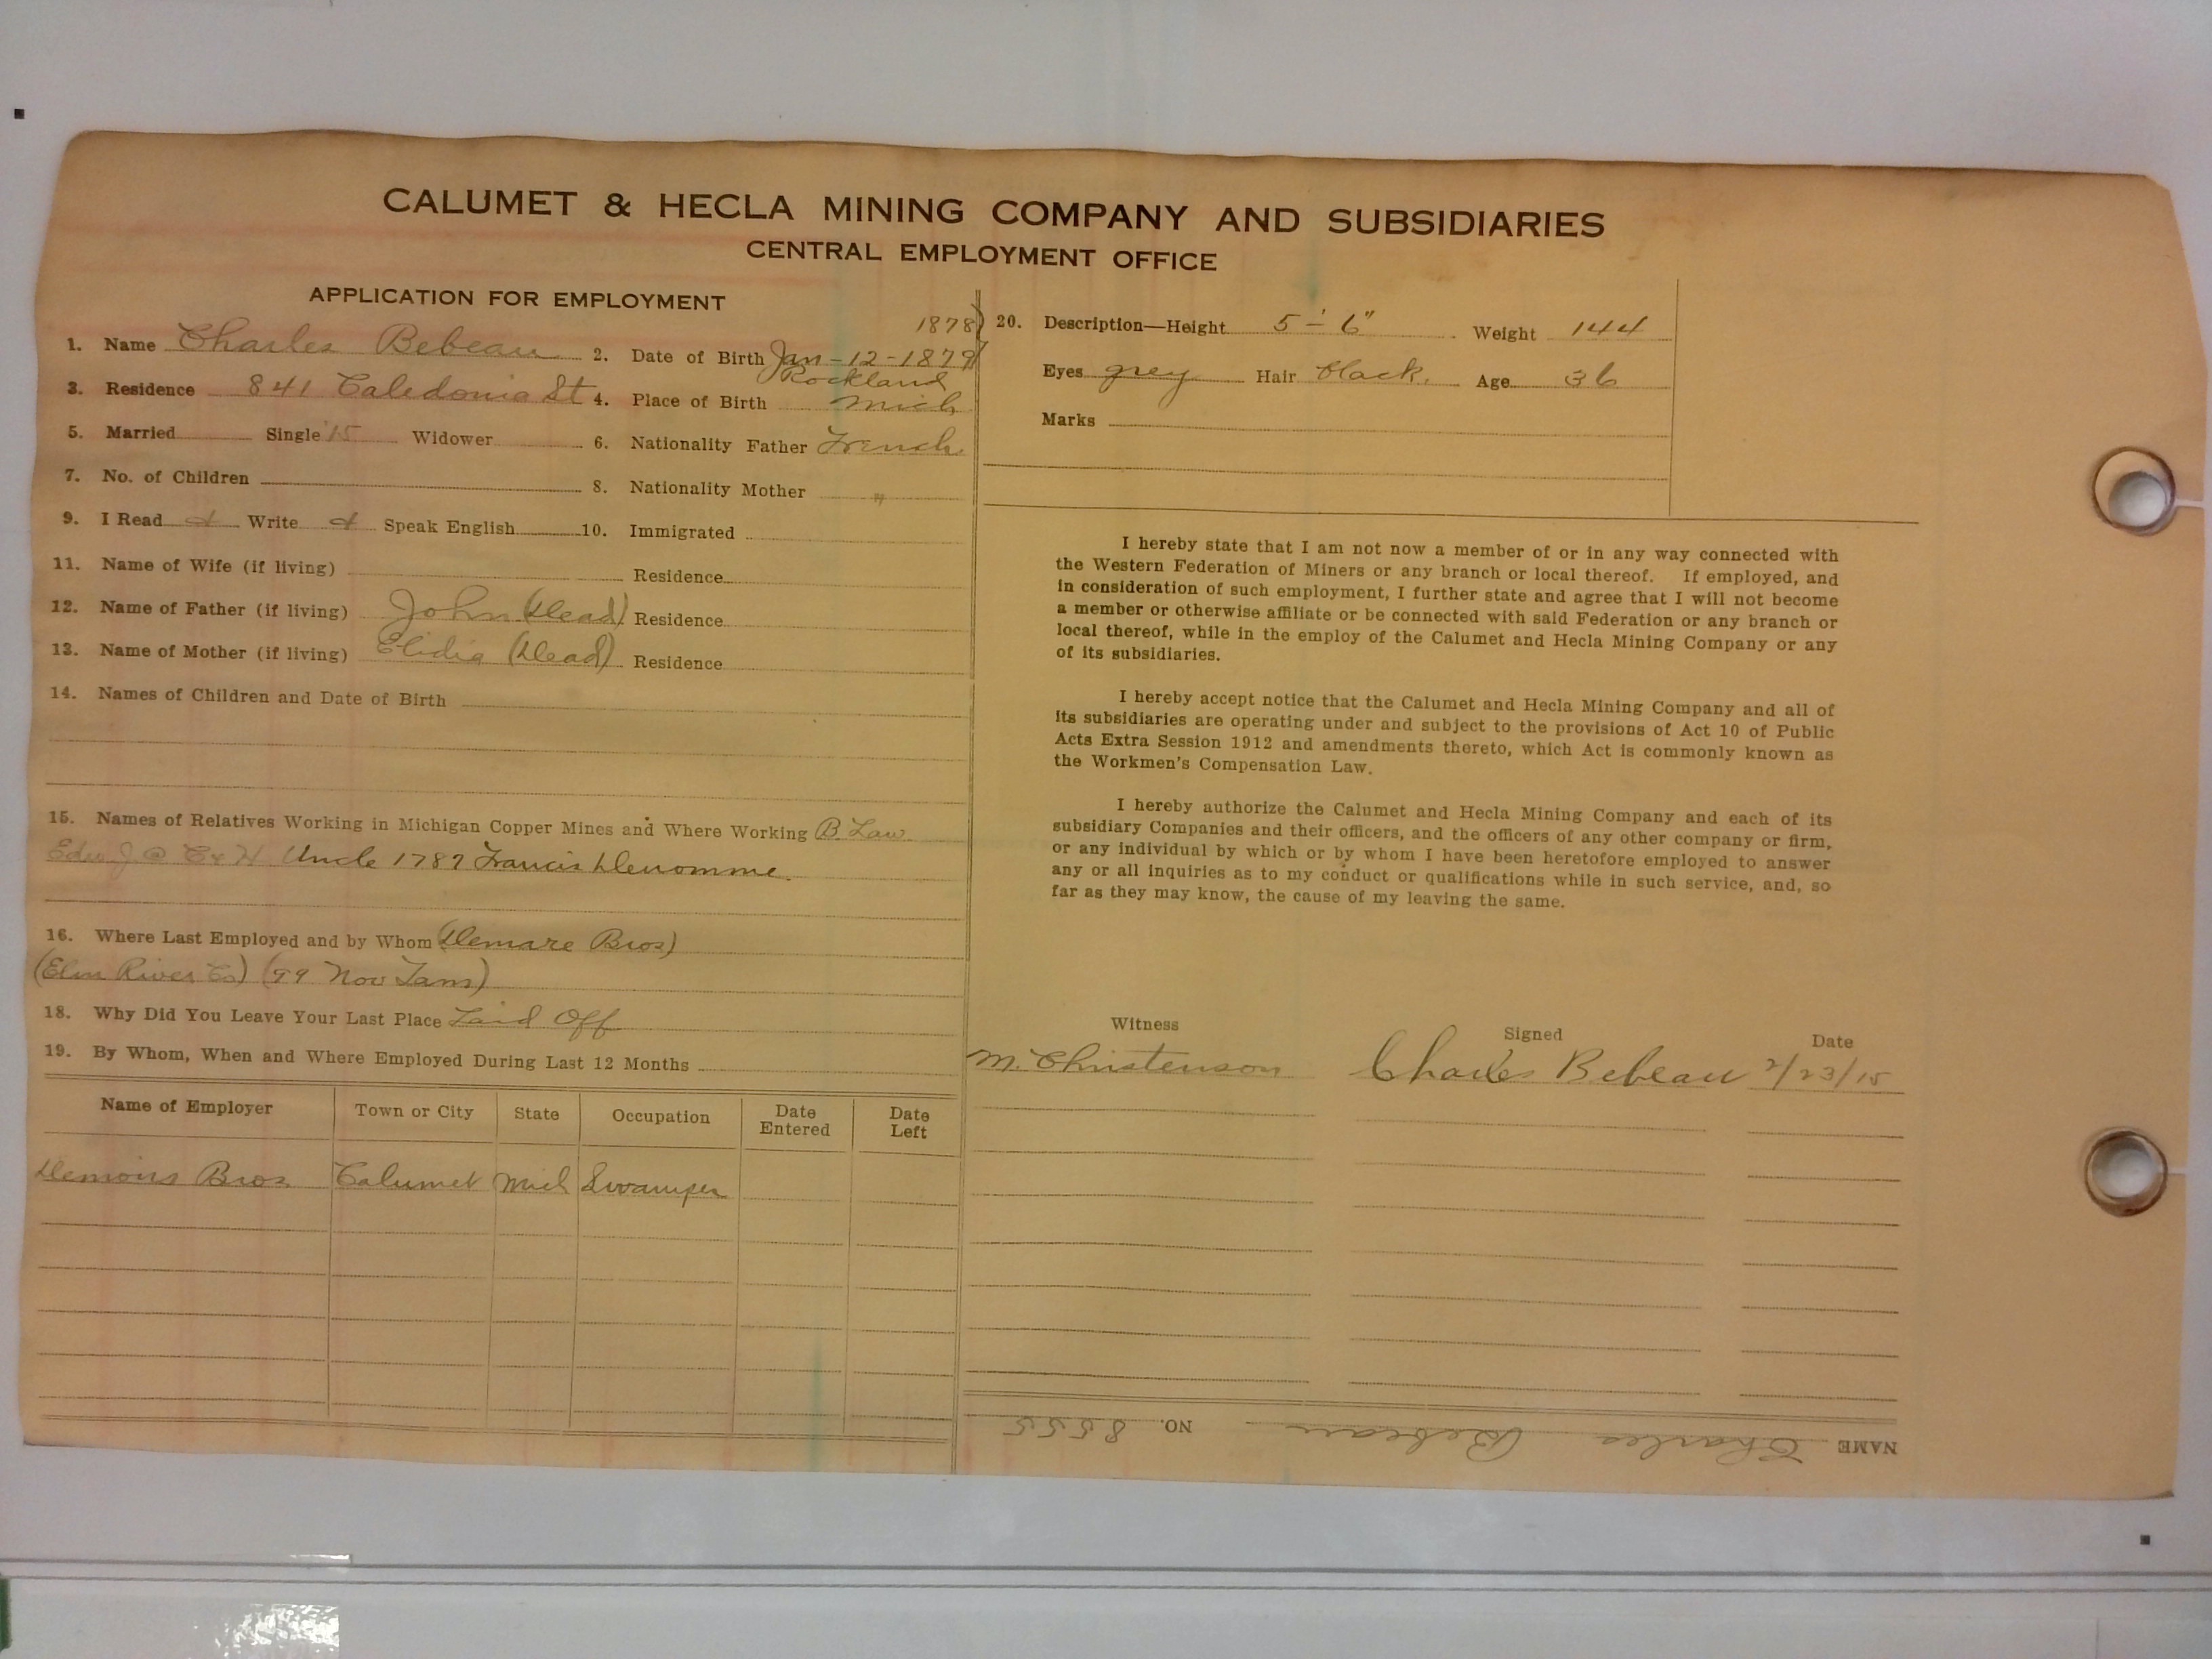 CALUMET & HECLA MINING COMPANY AND SUBSIDIARIES
CENTRAL EMPLOYMENT OFFICE
APPLICATION FOR EMPLOYMENT
1878
1. Name Charles Bebeau 2. Date of Birth Jan-12-1879
Rockland
3. Residence 841 Caledonia St 4. Place of Birth Mich
5. Married Single '15 Widower 6. Nationality Father French
7. No. of Children 8. Nationality Mother "
9. I Read Write Speak English 10. Immigrated
11. Name of Wife (if living) Residence
12. Name of Father (if living) John (Dead) Residence
13. Name of Mother (if living) Elidia (Dead) Residence
14. Names of Children and Date of Birth
15. Names of Relatives Working in Michigan Copper Mines and Where Working B. Law
Edw J @ C & H Uncle 1787 Francis Denomme.
16. Where Last Employed and by Whom (Demare Bros)
(Elm River Co) (99 Nov Tam)
18. Why Did You Leave Your Last Place Laid Off
19. By Whom, When and Where Employed During Last 12 Months
Name of Employer Town or City State Occupation Date Entered Date Left
Demois Bros. Calumet Mich Swamper
20. Description—Height 5'-6" Weight 144
Eyes grey Hair black. Age 36
Marks
I hereby state that I am not now a member of or in any way connected with
the Western Federation of Miners or any branch or local thereof. If employed, and
in consideration of such employment, I further state and agree that I will not become
a member or otherwise affiliate or be connected with said Federation or any branch or
local thereof, while in the employ of the Calumet and Hecla Mining Company or any
of its subsidiaries.
I hereby accept notice that the Calumet and Hecla Mining Company and all of
its subsidiaries are operating under and subject to the provisions of Act 10 of Public
Acts Extra Session 1912 and amendments thereto, which Act is commonly known as
the Workmen's Compensation Law.
I hereby authorize the Calumet and Hecla Mining Company and each of its
subsidiary Companies and their officers, and the officers of any other company or firm,
or any individual by which or by whom I have been heretofore employed to answer
any or all inquiries as to my conduct or qualifications while in such service, and, so
far as they may know, the cause of my leaving the same.
Witness Signed Date
M. Christenson Charles Bebeau 2/23/15
NAME Charles Bebeau NO. 8555